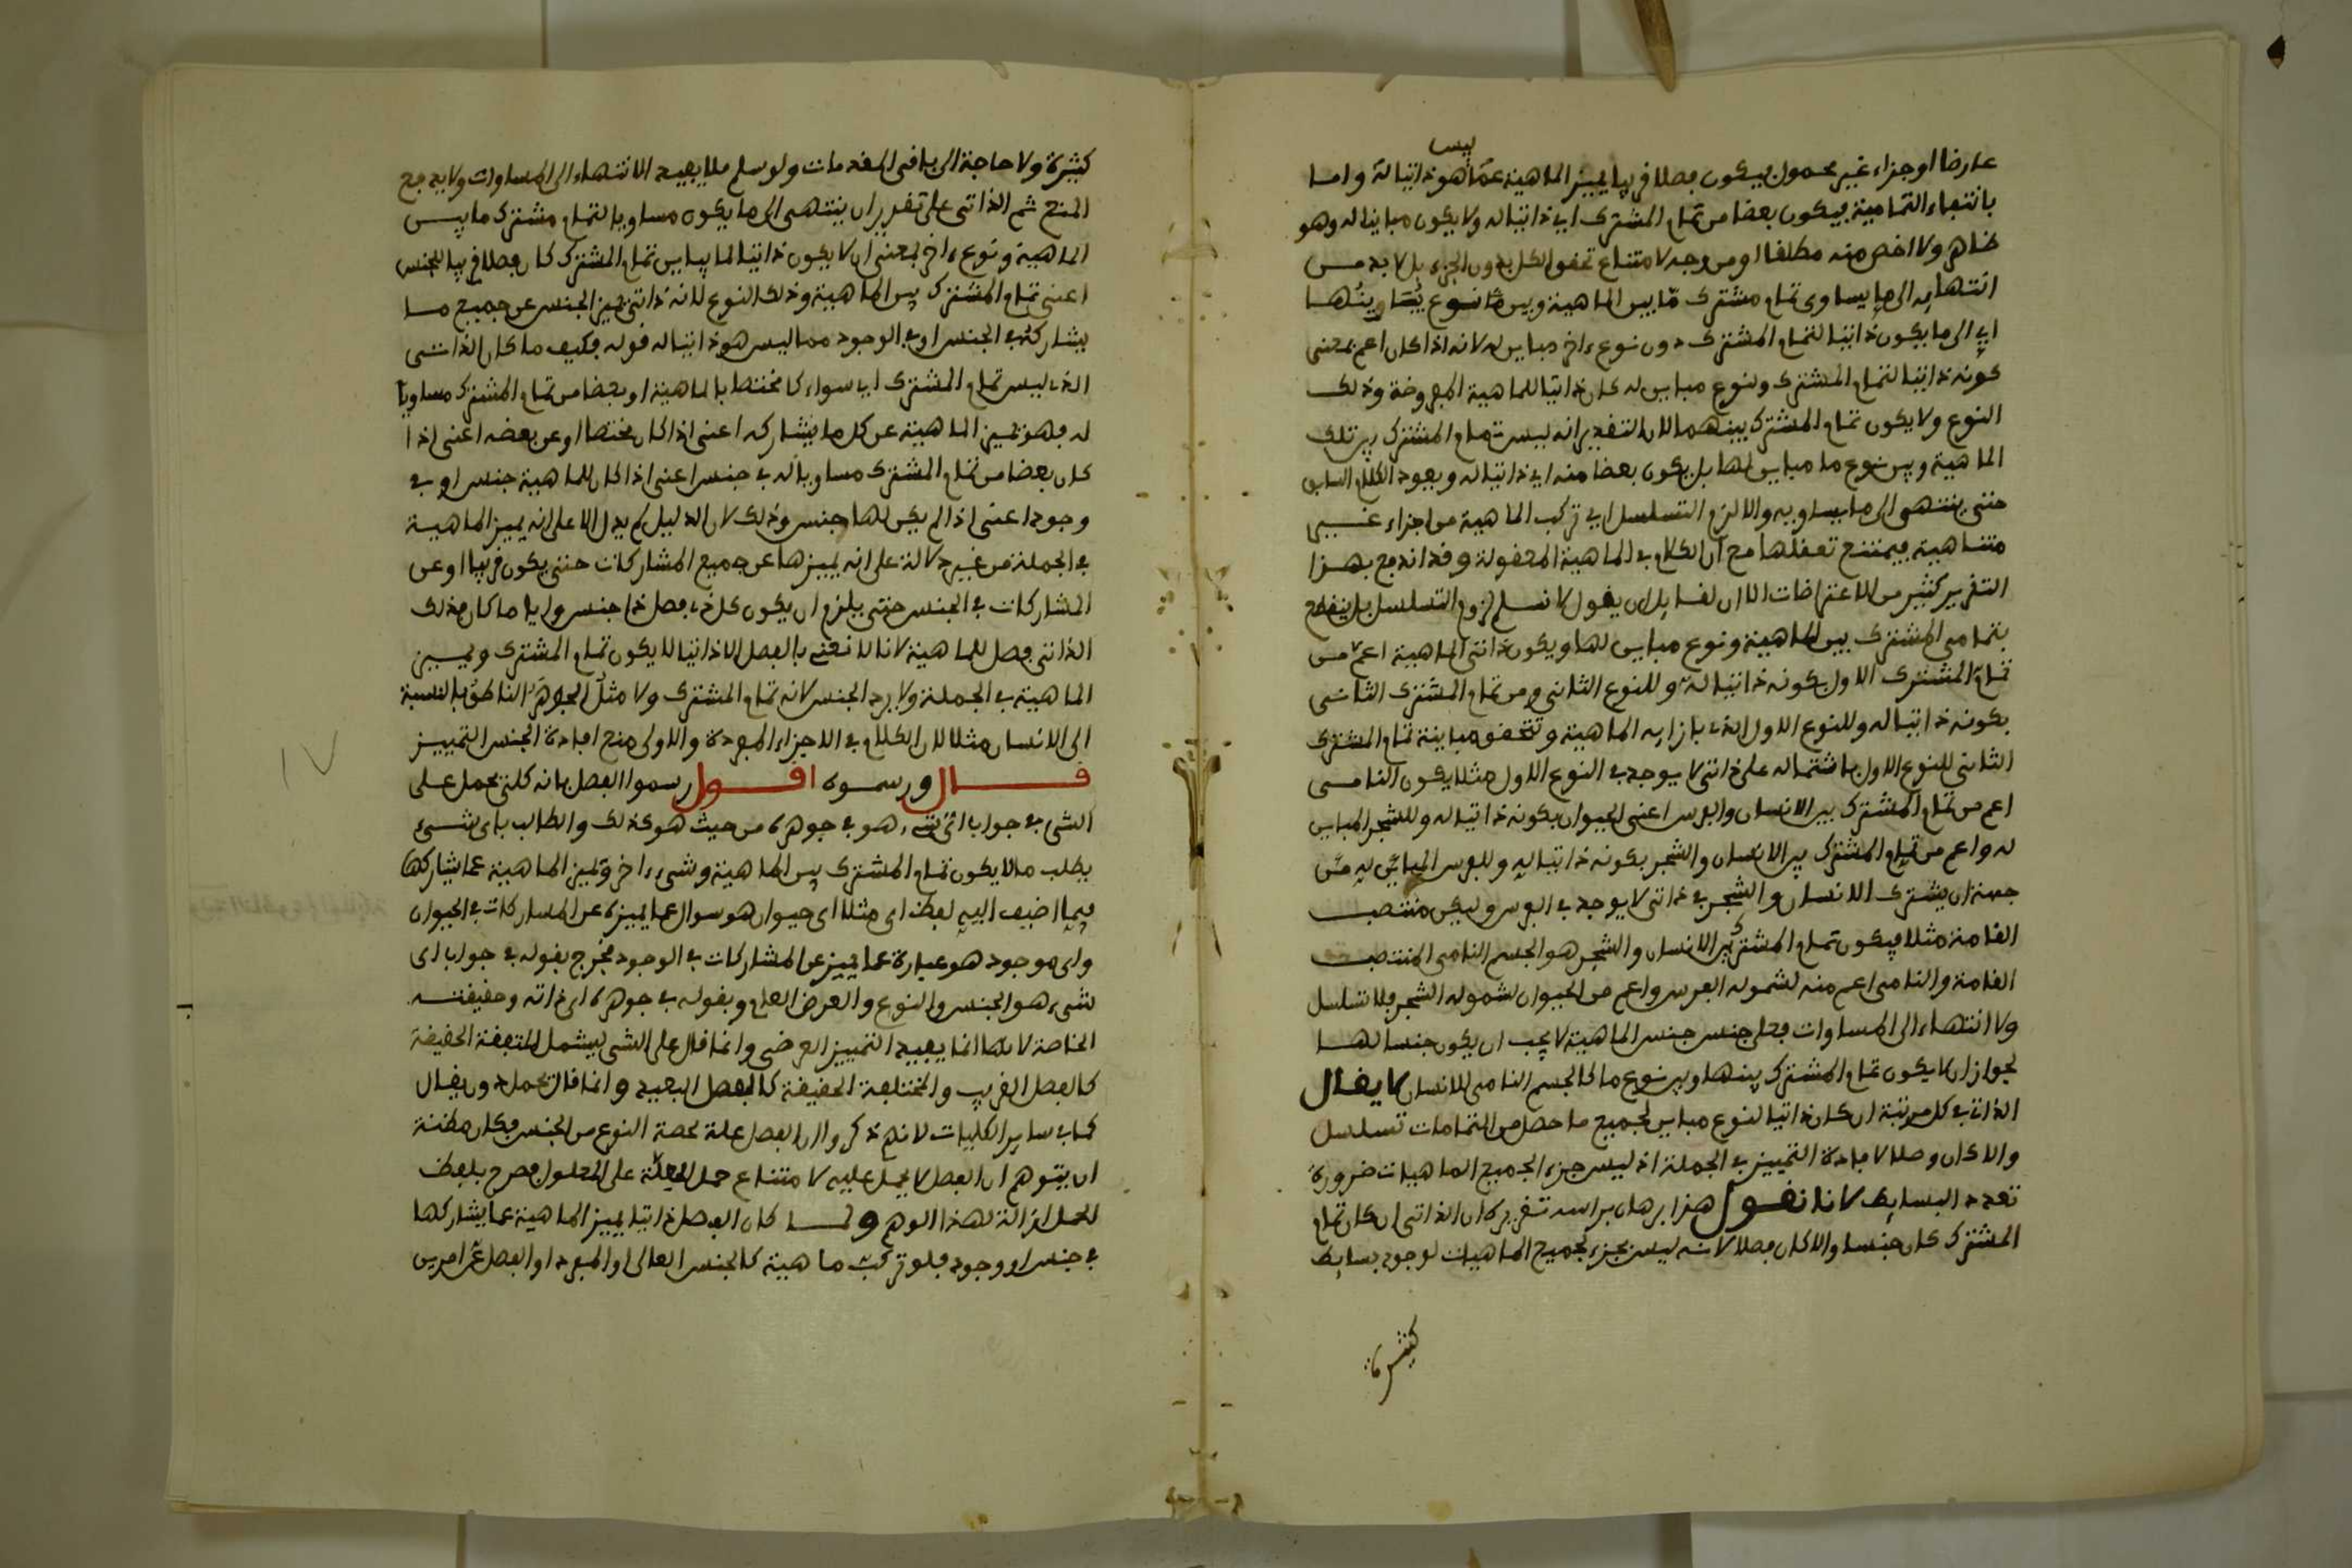 ليس
عارضا او جزاء غير محمول فيكون فصلا قريبا يميز الماهية عما هو ذاتيا له واما
بانتفاء التمامية فيكون بعضا من تمام المشترك اي ذاتيا له ولا يكون مباينا له وهو
ظاهر ولا اخص منه مطلقا او من وجه لامتناع تحقق الكل بدون الجزء بل لا بد مــن
انتهايه الى ما يساوى تمام مشترك ما بين الماهية وبين ما نوع يباينها
اي الى ما يكون ذاتيا لتمام المشترك دون نوع ءاخر مباين له لانه اذا كان اعم بمعنى
كونه ذاتيا لتمام المشترك ولنوع مباين له كان ذاتيا للماهية المفروضة وذلــك
النوع ولا يكون تمام المشترك بينهما لان التقدير انه ليس تمام المشترك بين تلك
الماهية وبين نوع ما مباين لها بل يكون بعضا منه اي ذاتيا له ويعود الكلام السابق
حتى ينتهى الى ما يساويه والا لزم التسلسل اي تركب الماهية من اجزاء غــير
متناهية فيمتنع تعقلها مع ان الكلام في الماهية المعقولة وقد اندفع بهـذا
التقرير كثير من الاعتراضات الا ان لقايل ان يقول لا نسلم لزوم التسلسل بل ينقطع
بتمامي المشترك بين الماهية ونوع مباين لها ويكون ذاتي الماهية اعم من
تمام المشترك الاول بكونه ذاتيا له وللنوع الثاني ومن تمام المشترك الثانـي
بكونه ذاتيا له وللنوع الاول الذي بازايه الماهية وتحقق مباينة تمام المشترك
الثاني للنوع الاول باشتماله على ذاتي لا يوجد في النوع الاول مثلا يكون النامــي
اعم من تمام المشترك بين الانسان والفرس اعني الحيوان بكونه ذاتيا له وللشجر المباين
له واعم من تمام المشترك بين الانسان والشجر بكونه ذاتيا له وللفرس المباين له من
جهة ان يشترك الانسان والشجر في ذاتي لا يوجد في الفرس وليكن منتصـب
القامة مثلا فيكون تمام المشترك بين الانسان والشجر هو الجسم النامي المنتصب
القامة والنامي اعم منه لشموله الفرس واعم من الحيوان لشموله الشجر فلا تسلسل
ولا انتهاء الى المساوات فعلى جنس جنس الماهية لا يجب ان يكون جنسا لهــا
لجواز ان لا يكون تمام المشترك بينها وبين نوع ما كالجسم النامي للانسان لا يقـال
الذاتي في كل مرتبة ان كان ذاتيا لنوع مباين لجميع ما حصل من التمامات تسلسل
والا كان فصلا لافادة التمييز في الجملة اذ ليس جزء الجميع الماهيات ضرورة
تعدد البسايط لانا نقـول هذا برهان براسه تقريره ان الذاتي ان كان تمام
المشترك كان جنسا والا كان فصلا لانه ليس بجزء لجميع الماهيات لوجود بسايط
كثيرة
كثيرة ولا حاجة الى باقي المقدمات ولو سلم فلا يفيد الانتهاء الى المساوات ولا يدفع
المنع ثم الذاتي على تقدير ان ينتهى الى ما يكون مساويا لتمام مشترك ما بيــن
الماهية ونوع ءاخر بمعنى ان لا يكون ذاتيا لما يباين تمام المشترك كان فصلا قريبا للجنس
اعني تمام المشترك بين الماهية وذلك النوع لانه ذاتي يميز الجنس عن جميع مــا
يشاركه في الجنس او في الوجود مما ليس هو ذاتيا له قوله فكيف ما كان الذاتـي
الذي ليس تمام المشترك اي سواء كان مختصا بالماهية او بعضا من تمام المشترك مساويا
له فهو يميز الماهية عن كل ما يشاركه اعني اذا كان مختصا او عن بعضه اعني اذا
كان بعضا من تمام المشترك مساويا له في جنس اعني اذا كان للماهية جنس او في
وجود اعني اذا لم يكن لها جنس وذلك لان الدليل لم يدل الا على انه يميز الماهيـة
في الجملة من غير دلالة على انه يميزها عن جميع المشاركات حتى يكون قريبا او عن
المشاركات في الجنس حتى يلزم ان يكون كل ذي فصل ذا جنس وايا ما كان فذلك
الذاتي فصل للماهية لانا لا نعني بالفصل الا ذاتيا لا يكون تمام المشترك ويميـز
الماهية في الجملة ولا يرد الجنس لانه تمام المشترك ولا مثل الجوهر الناطق بالنسبة
الى الانسان مثلا لان الكلام في الاجزاء المفردة والاولى منع افادة الجنس التمييـز
قــــال ورسمــوه اقــــول رسموا الفصل بانه كلي يحمل على
الشي في جواب اي شيء هو في جوهره من حيث هو كذلك والطالب باي شــيء
يطلب ما لا يكون تمام المشترك بين الماهية وشيء ءاخر ويميز الماهية عما يشاركها
فيما اضيف اليه لفظ اي مثلا اي حيوان هو سوال عما يميزه عن المشاركات في الحيوان
واي موجود هو عبارة عما يميز عن المشاركات في الوجود فخرج بقوله في جواب اى
شيء هو الجنس والنوع والعرض العام وبقوله في جوهره اي ذاته وحقيقتــه
الخاصة لانها انما يفيد التمييز العرضي وانما قال على الشي ليشمل المتفقة الحقيقة
كالفصل القريب والمختلفة الحقيقة كالفصل البعيد وانما قال يحمل دون يقـال
كما في ساير الكليات لانهم ذكروا ان الفصل علة لحصة النوع من الجنس فكان مظنة
ان يتوهم ان الفصل لا يحمل عليه لامتناع حمل العلة على المعلول فصرح بلفظ
الحمل ازالة لهذا الوهم ولمــا كان الفصل ذاتيا يميز الماهية عما يشاركها
في جنس او وجود فلو تركبت ماهية كالجنس العالي او المفرد او الفصل عن امرين
١٧